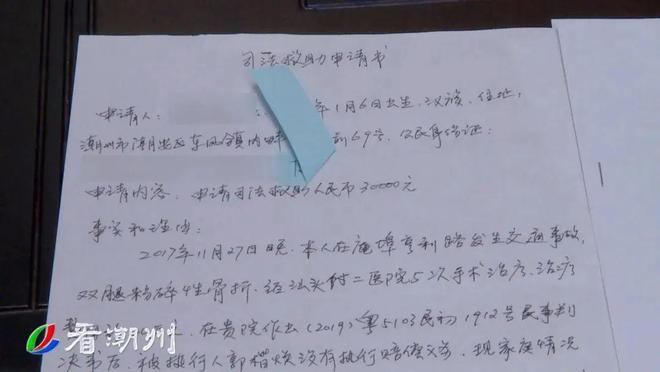 司法救助申请书
申请人: 年1月6日出生,汉族,住址:
潮州市潮安区东凤镇内畔 69号,公民身份证:
申请内容:申请司法救助人民币30000元
事实和理由:
2017年11月27日晚,本人在庵埠亨利路发生交通事故,
双腿粉碎性骨折,经汕头附二医院5次手术治疗,治疗
在贵院作出(2019)粤5103民初1912号民事判
决书后,被执行人郭楷焕没有执行赔偿义务,现家庭情况
看潮州